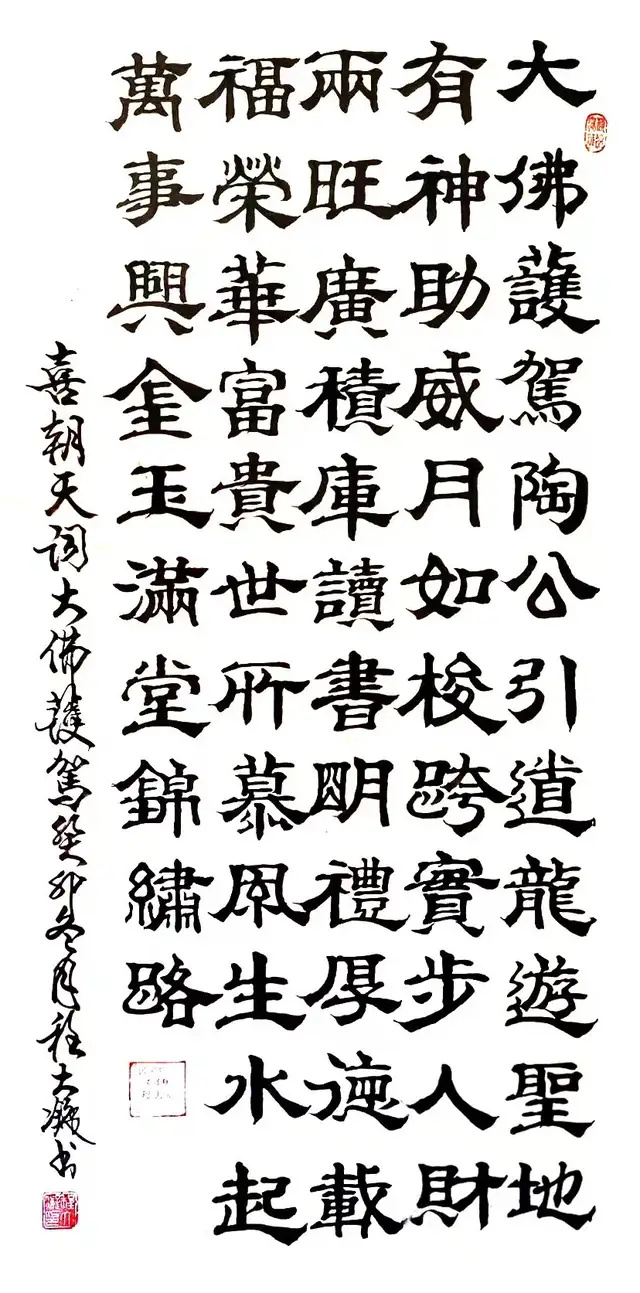 大佛護駕陶公引道龍遊聖地
有神助威月如梭跨實步人財
兩旺廣積庫讀書明禮厚德載
福榮華富貴世所慕風生水起
萬事興金玉滿堂錦繡路
喜朝天词大佛護駕癸卯冬月程大銀书